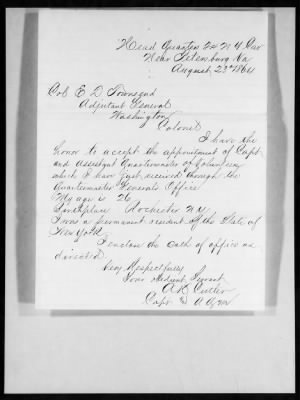 Head Quarters 2d N Y Cav
Near Petersburg Va
August 23rd 1864
Col E D Townsend
Adjutant General
Washington
Colonel
I have the
honor to accept the appointment of Capt
and Assistant Quartermaster of Volunteers
which I have just received through the
Quartermaster Generals Office
My age is 26
Birthplace Rochester N.Y.
I was a permanent resident of the State of
New York
I enclose the oath of office as
directed
Very Respectfully
Your Obedient Servant
A D Cutler
Capt & A Q M